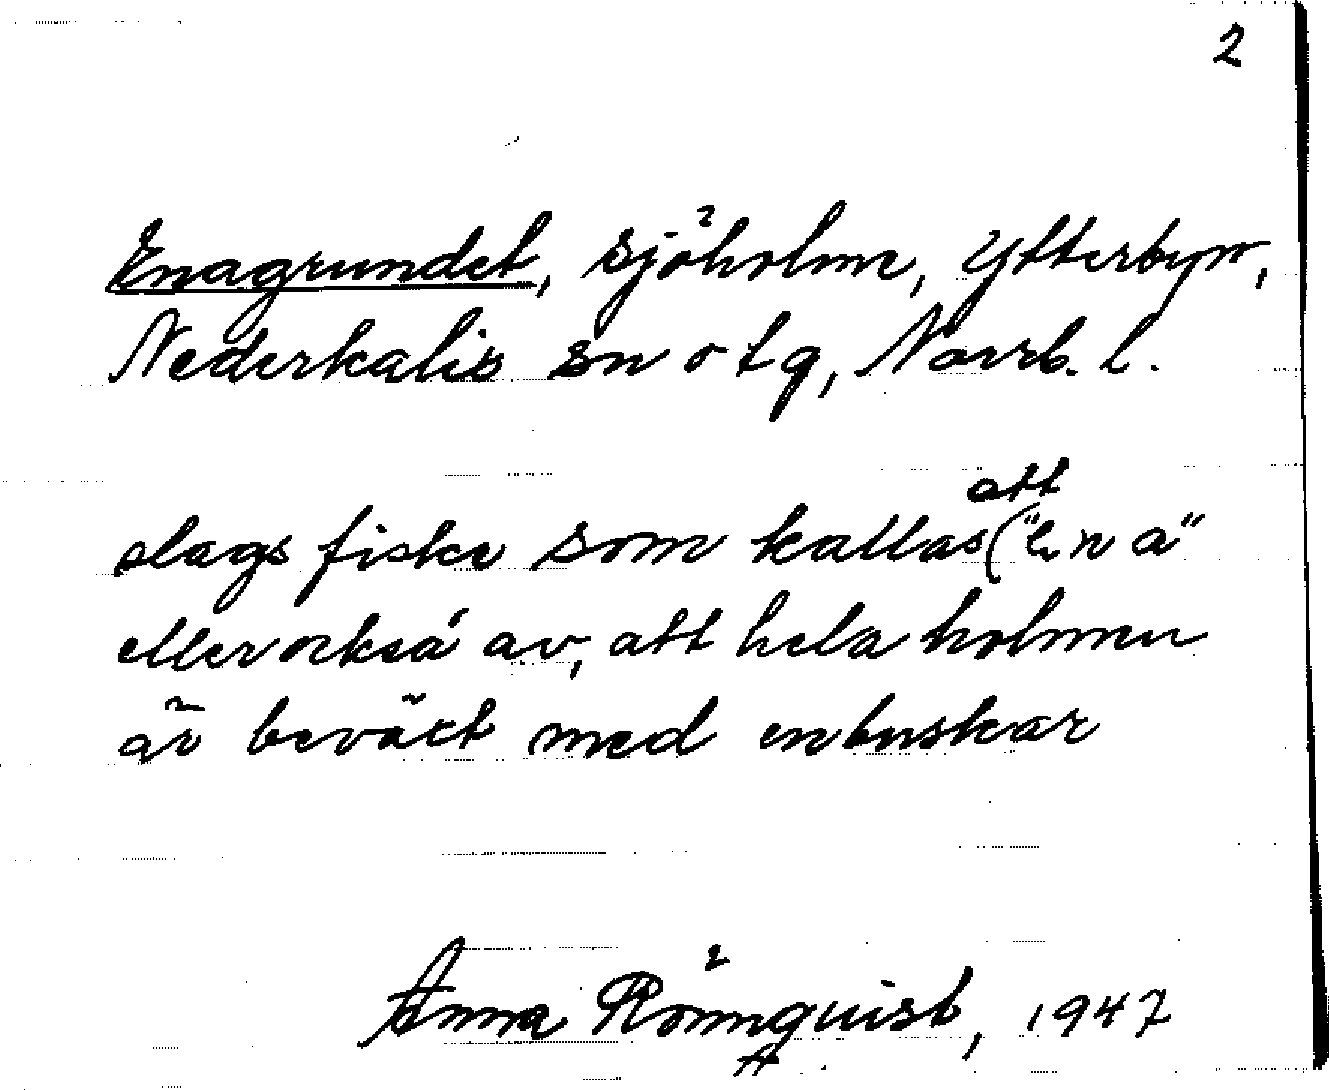 2
Enagrundet, sjöholme, Ytterbyn,
Nederkalix sn o tg, Norrb. l.
att
slags fiske som kallas ("ena"
eller också av, att hela holmen
är beväxt med enbuskar
Anna Rönnquist, 1947